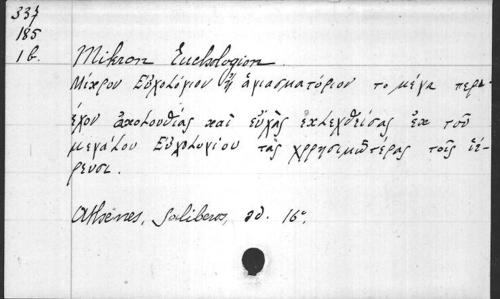 337
185
1 b.
Mikron Euchologion.
Μίκρον Εὐχολόγιον ἢ ἁγιασματόριον το μέγα περι-
έχον ἀκολουθίας καὶ εὐχὰς ἐκλεχθείσας ἐκ τοῦ
μεγάλου Εὐχολογίου τὰς χρησιμωτέρας τοῖς ἱέ-
ρευσι.
Athènes, Saliberos, sd. 16°.